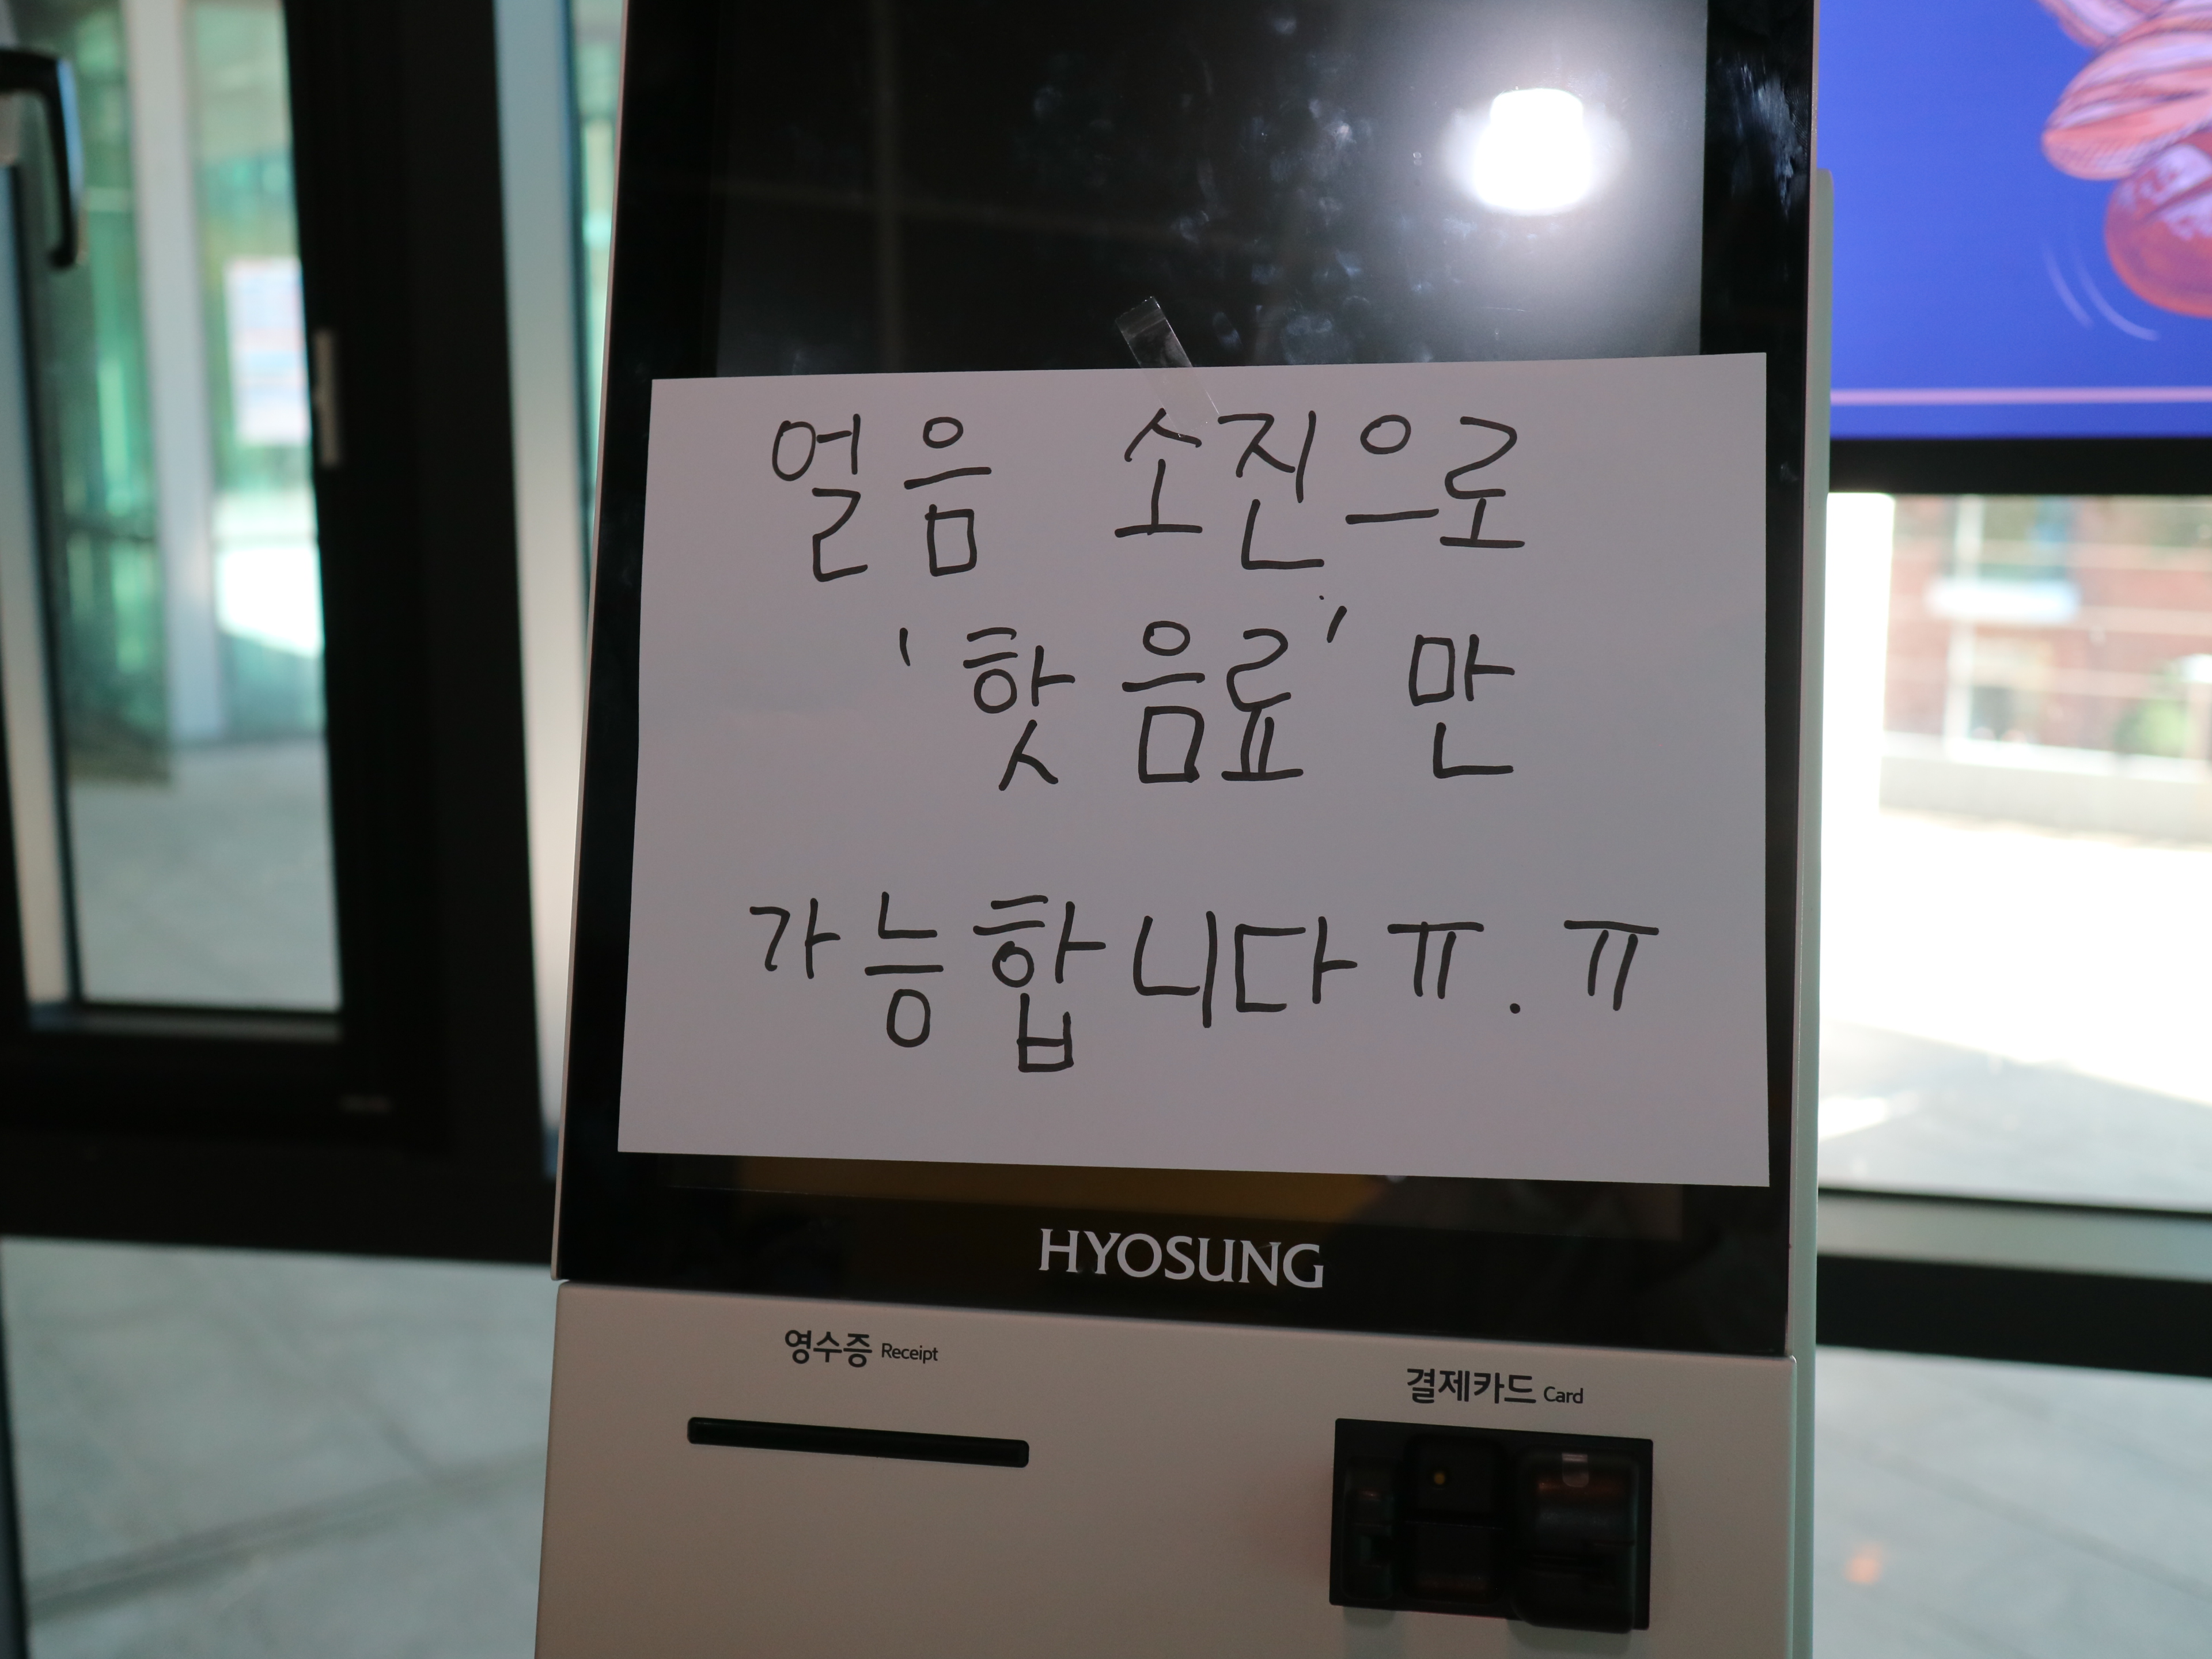 얼음 소진으로
'핫음료'만
가능합니다ㅠ.ㅠ
HYOSUNG
영수증 Receipt
결제카드 Card